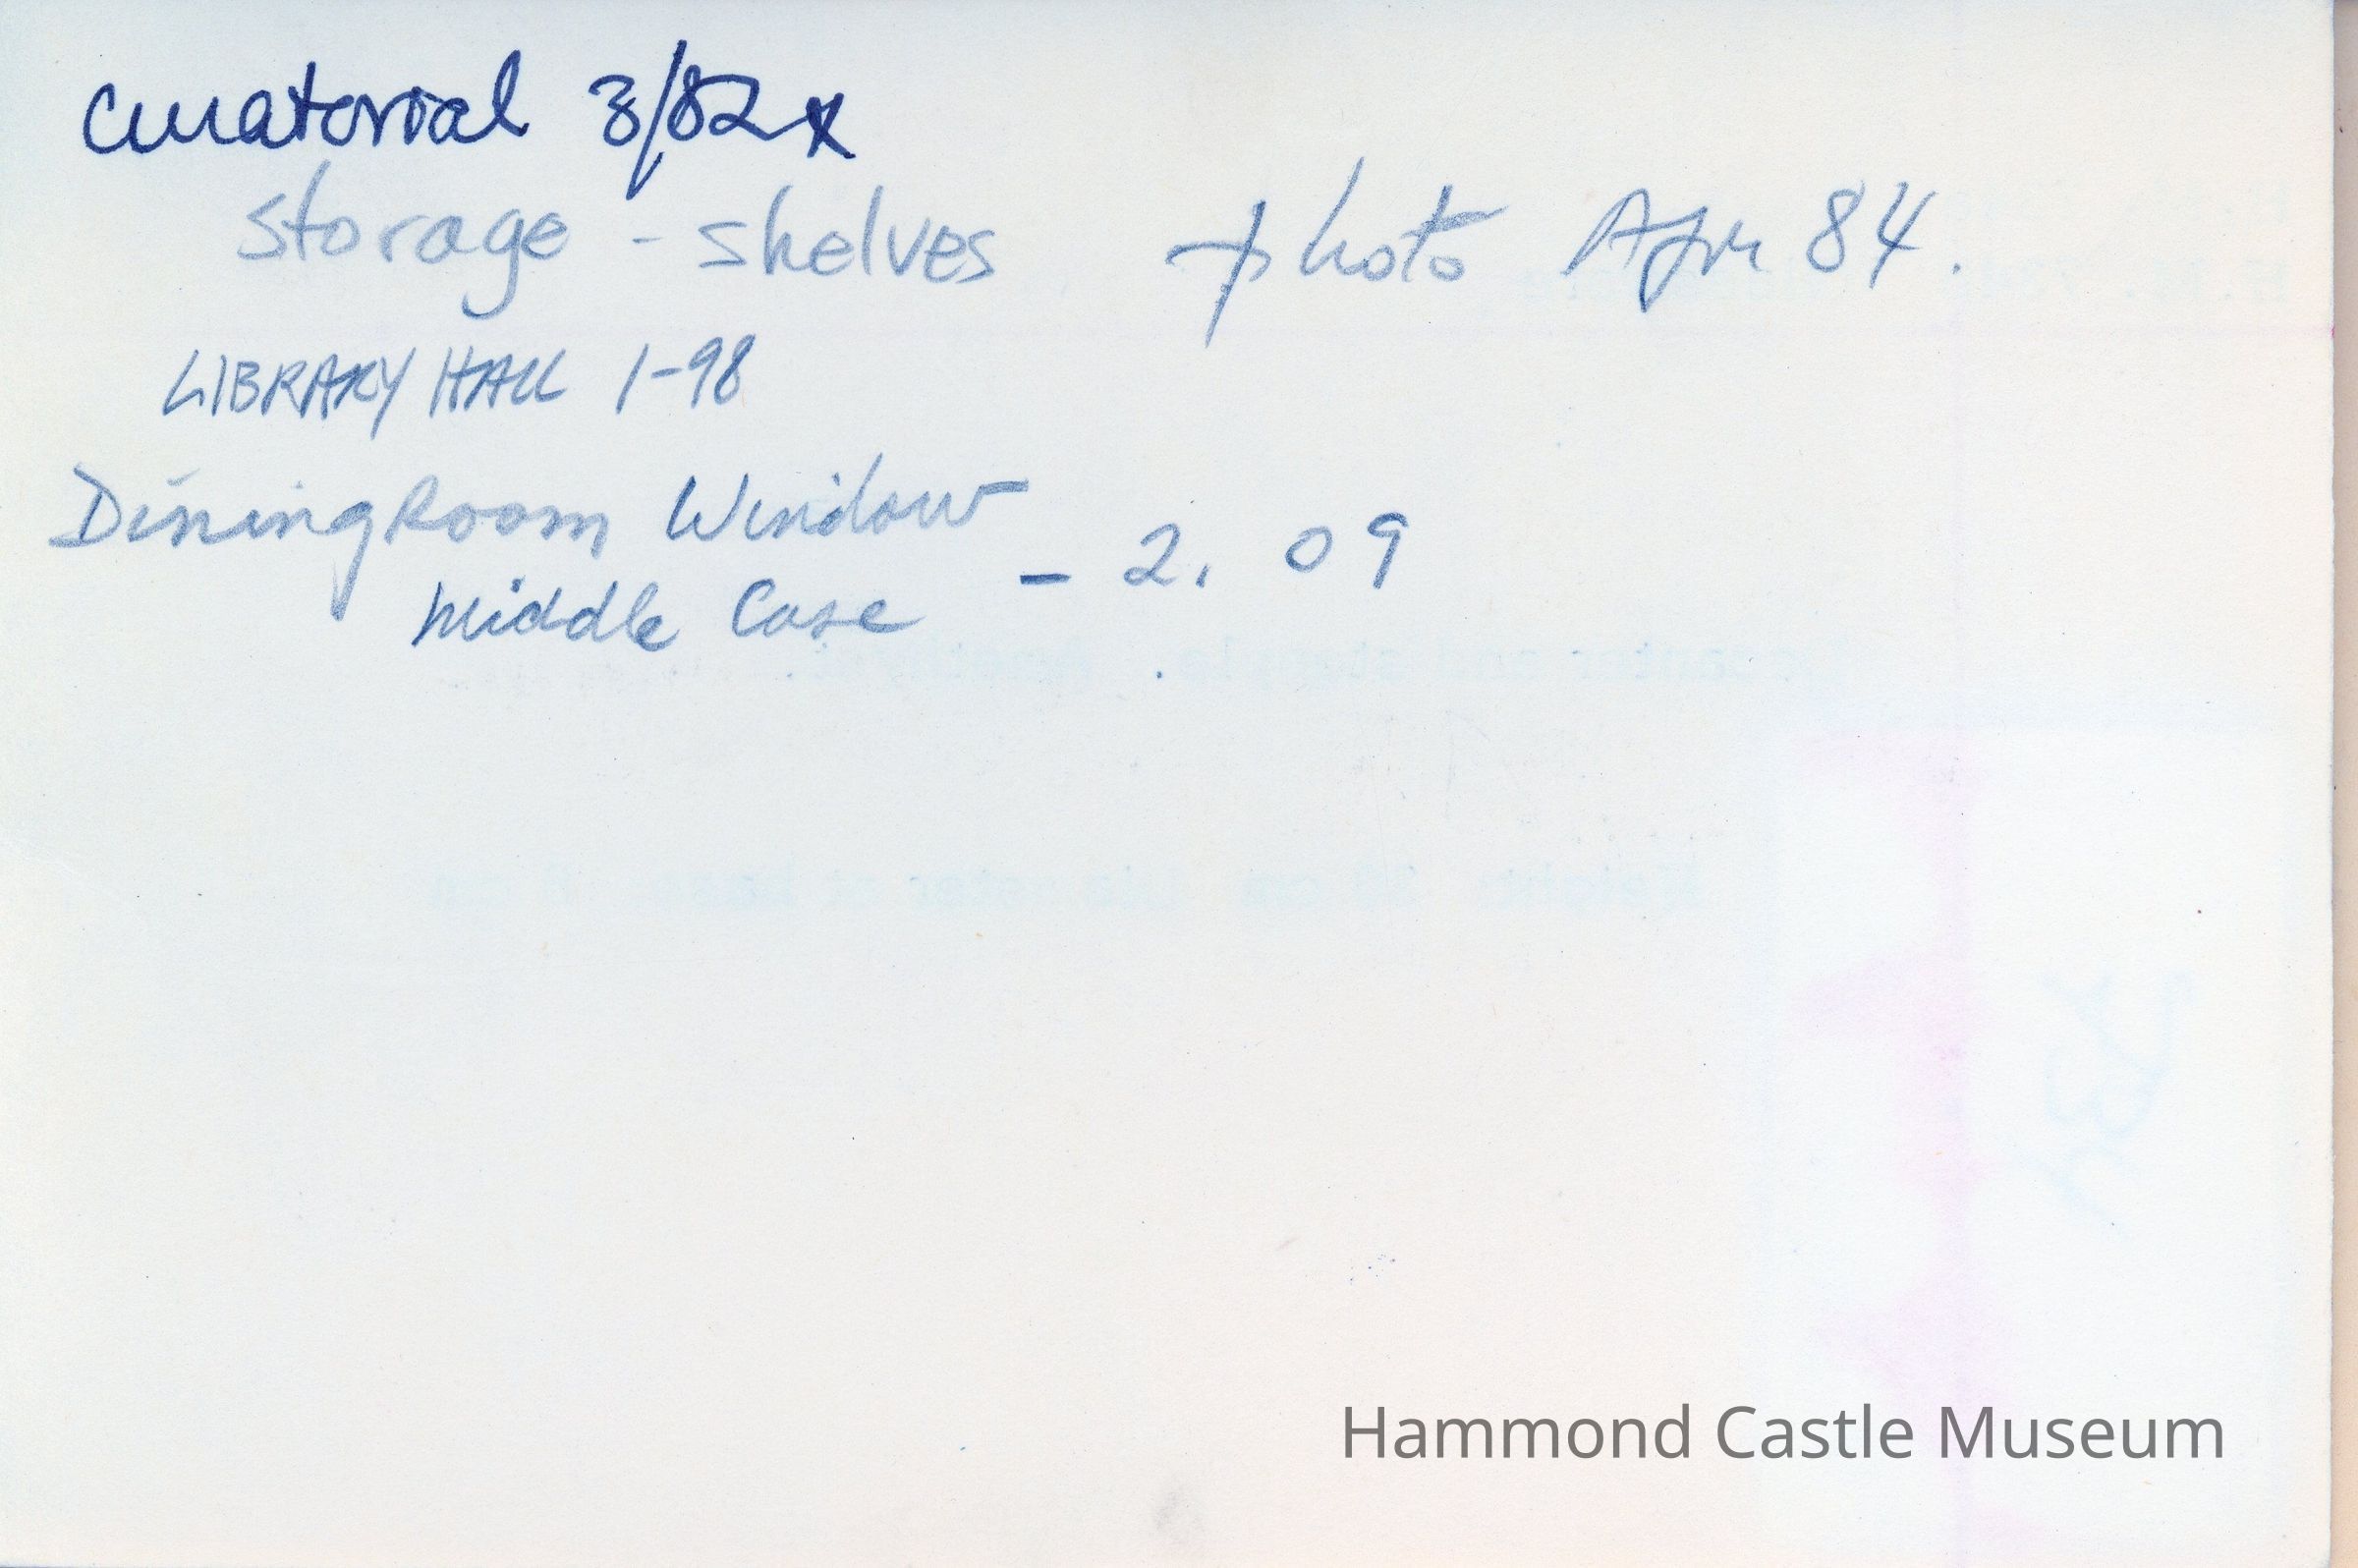 Curatorial 3/82 x
Storage - shelves photo Apr 84.
LIBRARY HALL 1-98
Dining Room Window
Middle Case - 2. 09
Hammond Castle Museum